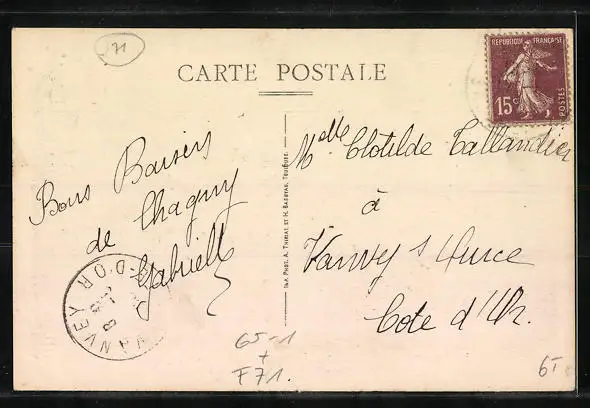 71
CARTE POSTALE
REPUBLIQUE FRANÇAISE
15c
POSTES
Bons Baisers
de Chagny
Gabrielle
Melle Clotilde Tallandier
à
Vanvey s Ource
Cote d'Or.
VANVEY
D'OR
8
Imp. Phot. A. Thiriat et H. Basuyau, Toulouse.
65-1
+
F71.